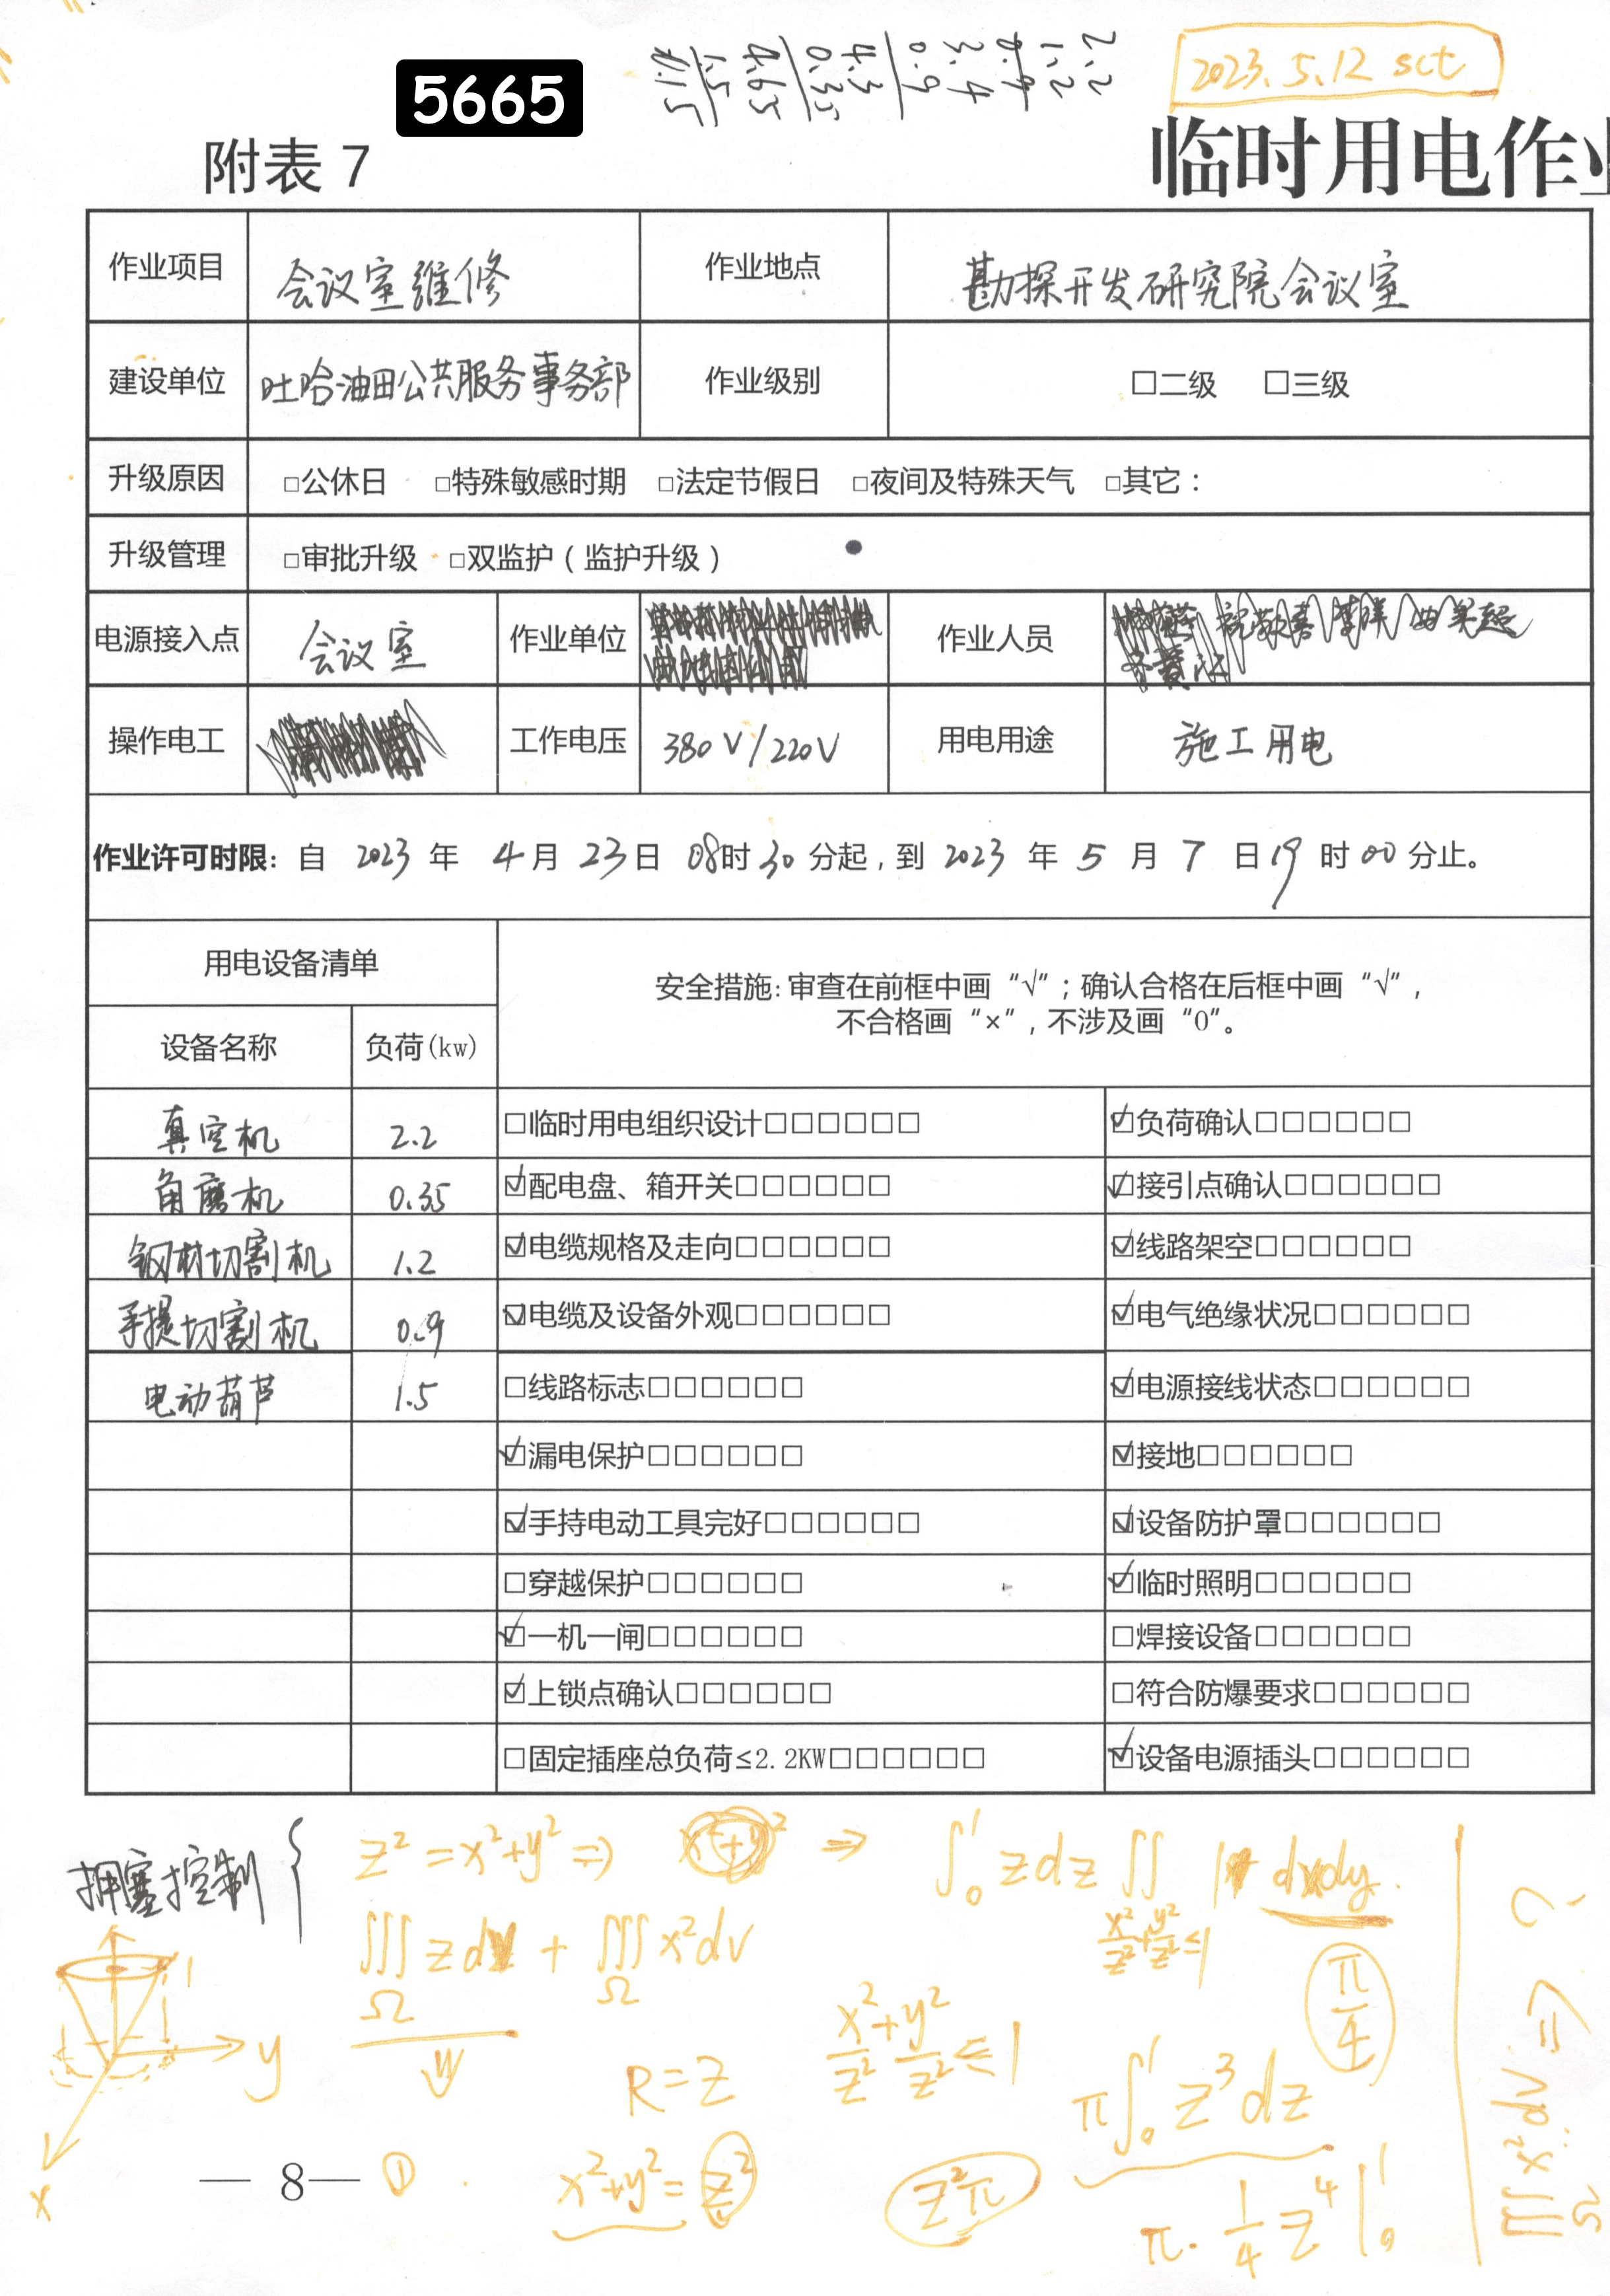 2023.5.12 sct
5665
2.2
1.2
3.4
0.9
4.3
0.35
4.65
1.5
附表 7
临时用电作业
作业项目 会议室维修 作业地点 勘探开发研究院会议室
建设单位 吐哈油田公共服务事务部 作业级别 □二级 □三级
升级原因 □公休日 □特殊敏感时期 □法定节假日 □夜间及特殊天气 □其它：
升级管理 □审批升级 □双监护（监护升级）
电源接入点 会议室 作业单位 作业人员
操作电工 工作电压 380V/220V 用电用途 施工用电
作业许可时限: 自 2023 年 4月 23日 08时 30 分起，到 2023 年 5 月 7 日 19 时 00 分止。
用电设备清单
安全措施: 审查在前框中画“√”；确认合格在后框中画“√”，
不合格画“×”，不涉及画“0”。
设备名称 负荷(kw)
真空机 2.2 □临时用电组织设计□□□□□□ ☑负荷确认□□□□□□
角磨机 0.35 ☑配电盘、箱开关□□□□□□ ☑接引点确认□□□□□□
钢材切割机 1.2 ☑电缆规格及走向□□□□□□ ☑线路架空□□□□□□
手提切割机 0.9 ☑电缆及设备外观□□□□□□ ☑电气绝缘状况□□□□□□
电动葫芦 1.5 □线路标志□□□□□□ ☑电源接线状态□□□□□□
☑漏电保护□□□□□□ ☑接地□□□□□□
☑手持电动工具完好□□□□□□ ☑设备防护罩□□□□□□
□穿越保护□□□□□□ ☑临时照明□□□□□□
☑一机一闸□□□□□□ □焊接设备□□□□□□
☑上锁点确认□□□□□□ □符合防爆要求□□□□□□
□固定插座总负荷≤2.2KW□□□□□□ ☑设备电源插头□□□□□□
拥塞控制 {
z²=x²+y² ⇒ x²+y² ⇒ ∫₀¹ zdz ∬ 1 dxdy.
x²/z²+y²/z²≤1
∭ zdv + ∭ x²dv
Ω Ω
π/4
x²/z²+y²/z²≤1
y
R=z
π∫₀¹ z³dz
x
— 8 —
①
x²+y²=z²
z²π
π·¼z⁴|₀¹
∭ x²dv ⇒
Ω